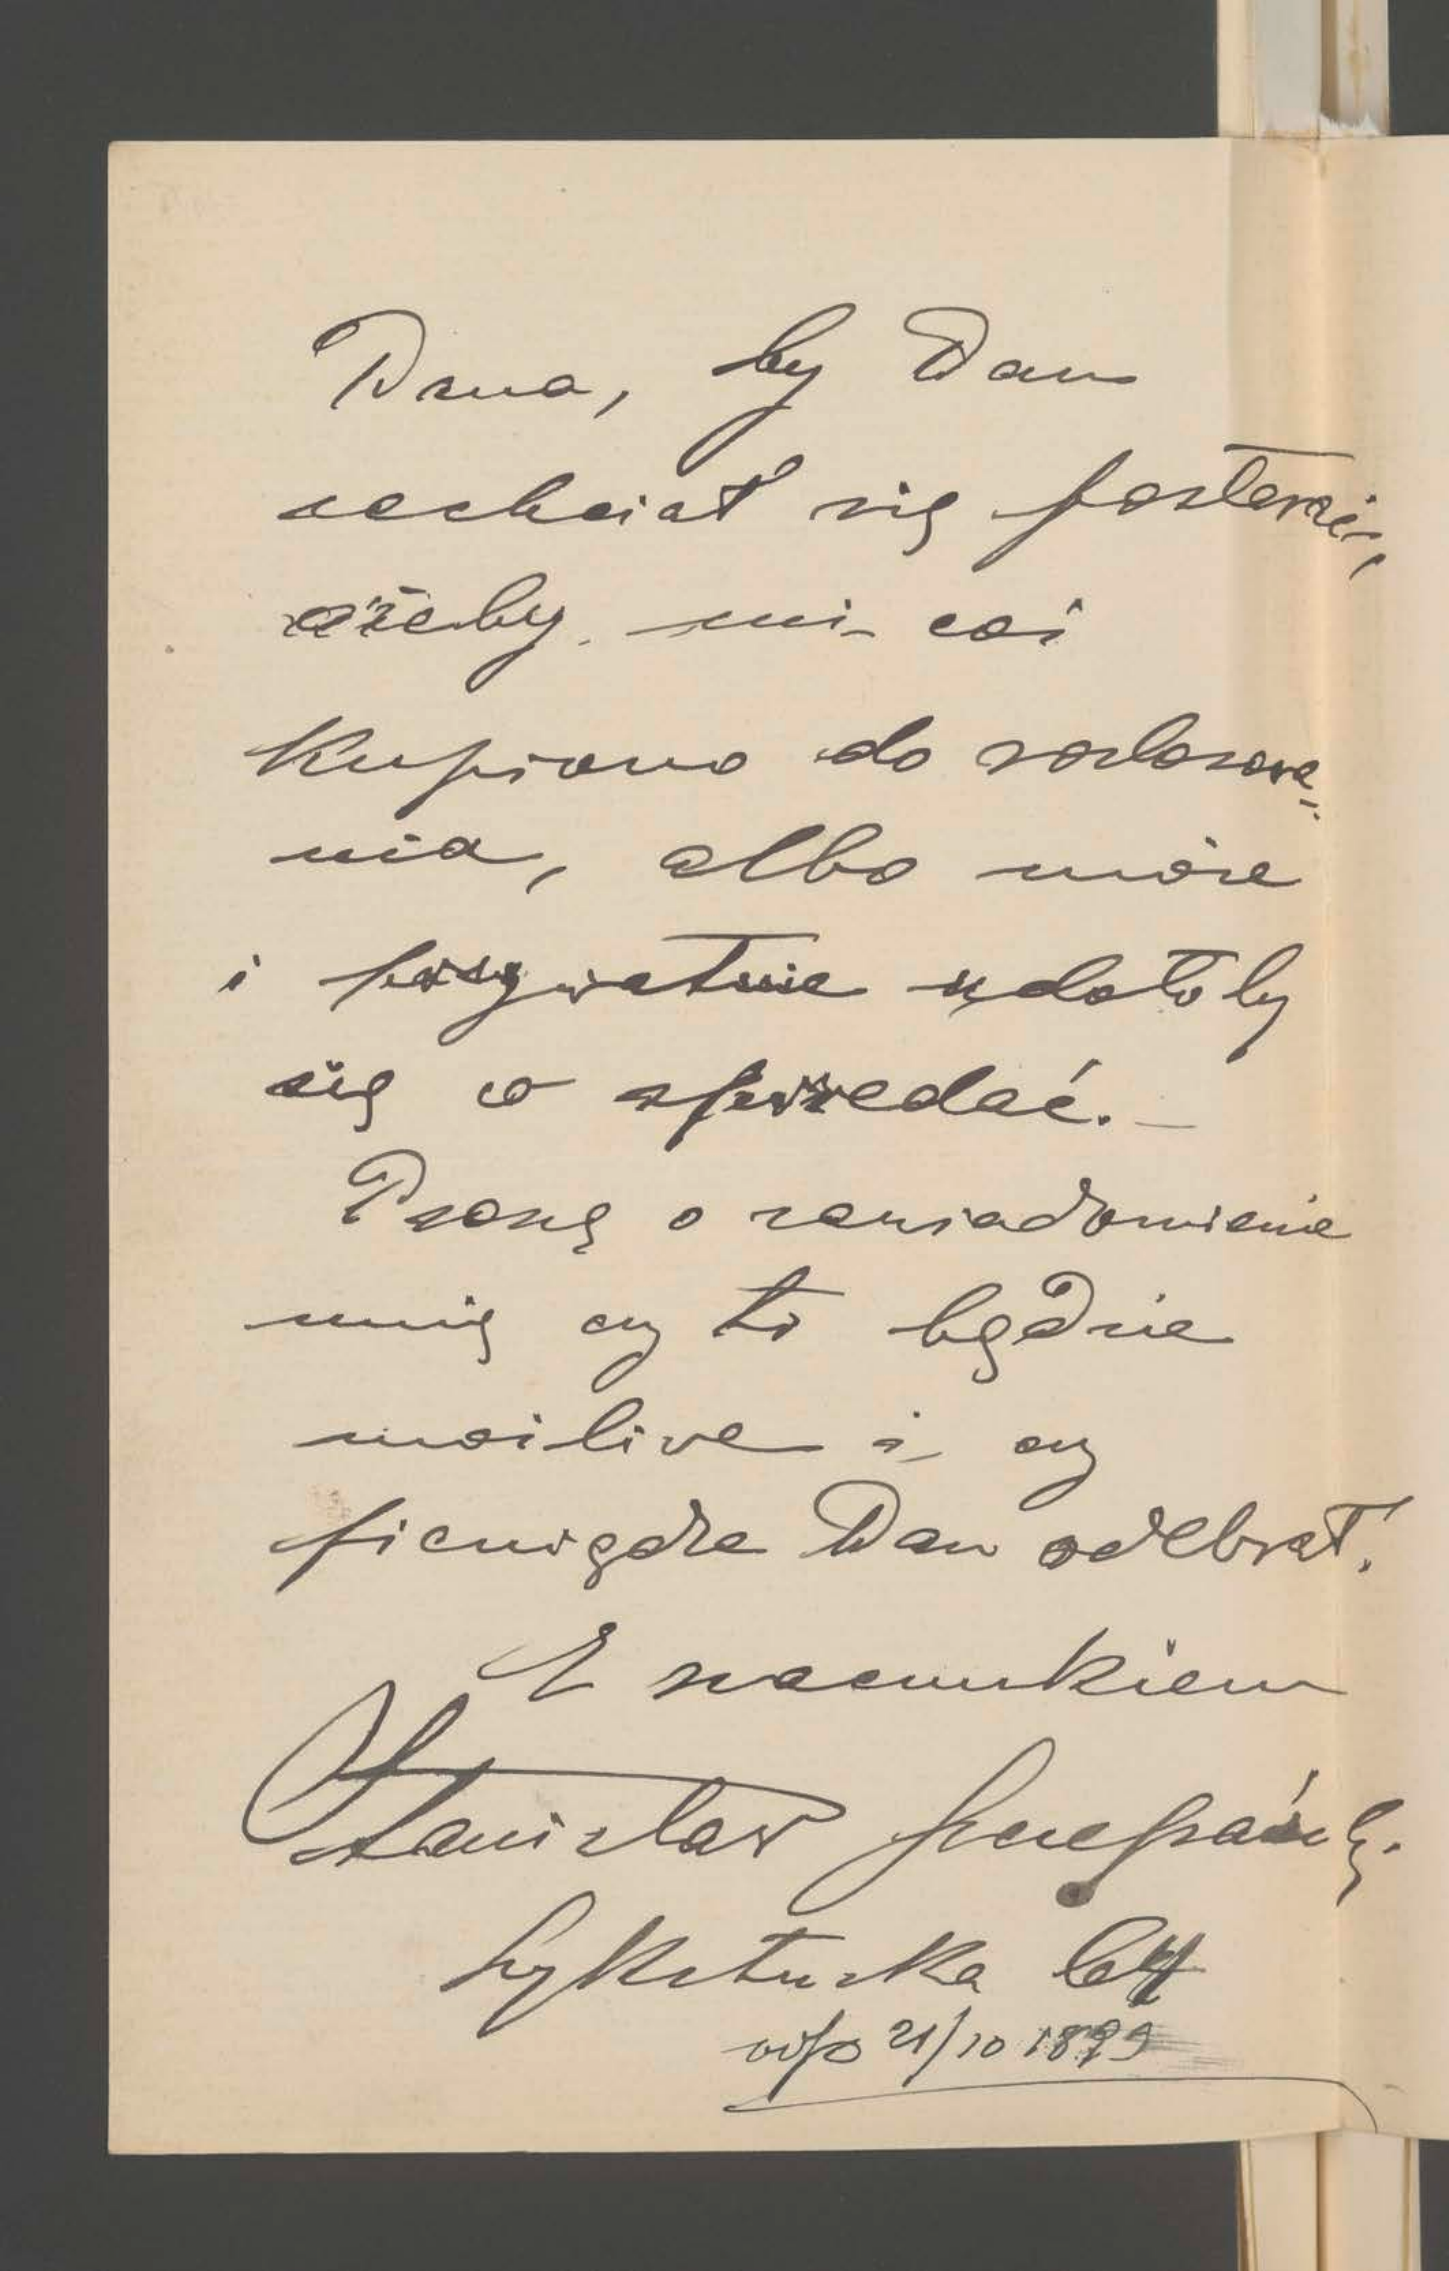 Pana, by Pan
zechciał się postarać,
ażeby mi coś
kupiono do rozlosowa-
nia, albo może
i prywatnie udałoby
się co sprzedać. —
Proszę o zawiadomienie
mnie czy to będzie
możliwe i czy
pieniądze Pan odebrał.
Z szacunkiem
Stanisław
64
odp 21/10 1899